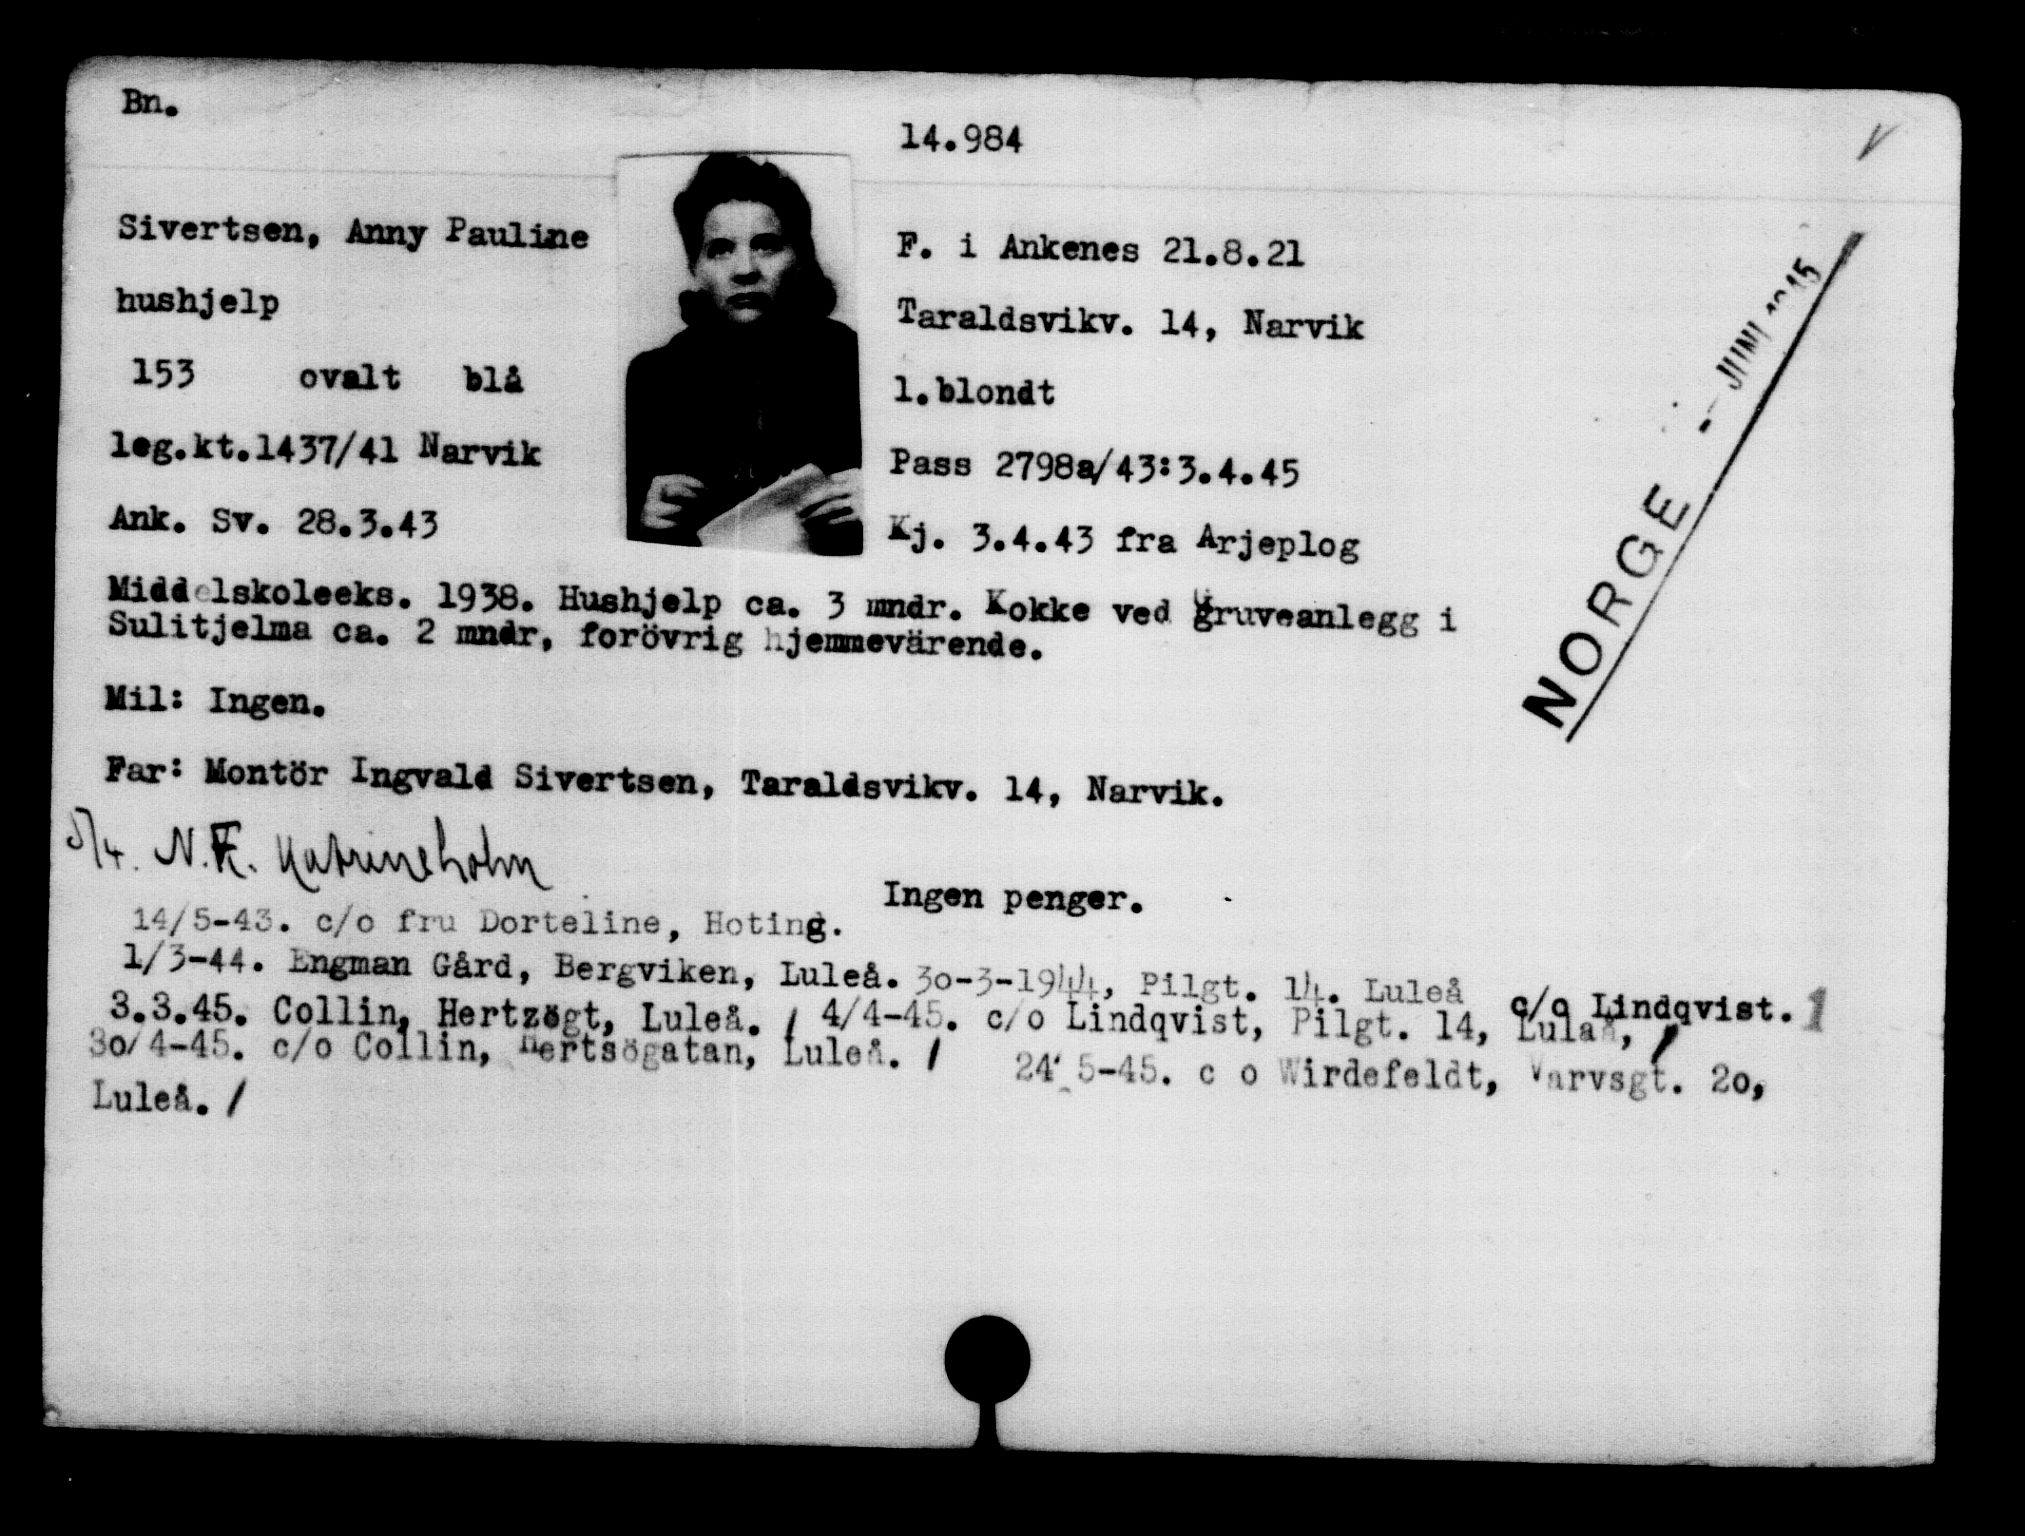 Bn.
14.984
Sivertsen, Anny Pauline
F. i Ankenes 21.8.21
hushjelp
Taraldsvikv. 14, Narvik
153 ovalt blå
l.blondt
leg.kt.1437/41 Narvik
Pass 2798a/43:3.4.45
Ank. Sv. 28.3.43
Kj. 3.4.43 fra Arjeplog
Middelskoleeks. 1938. Hushjelp ca. 3 mndr. Kokke ved gruveanlegg i
Sulitjelma ca. 2 mndr, forövrig hjemmevärende.
Mil: Ingen.
Far: Montör Ingvald Sivertsen, Taraldsvikv. 14, Narvik.
5/4. N.K. Katrineholm
Ingen penger.
14/5-43. c/o fru Dorteline, Hoting.
1/3-44. Engman Gård, Bergviken, Luleå. 30-3-1944, Pilgt. 14. Luleå c/o Lindqvist. 1
3.3.45. Collin, Hertzögt, Luleå. / 4/4-45. c/o Lindqvist, Pilgt. 14, Lulaå, /
30/4-45. c/o Collin, Hertsögatan, Luleå. / 24 5-45. c o Wirdefeldt, Varvsgt. 20,
Luleå. /
NORGE
- JUNI 1945